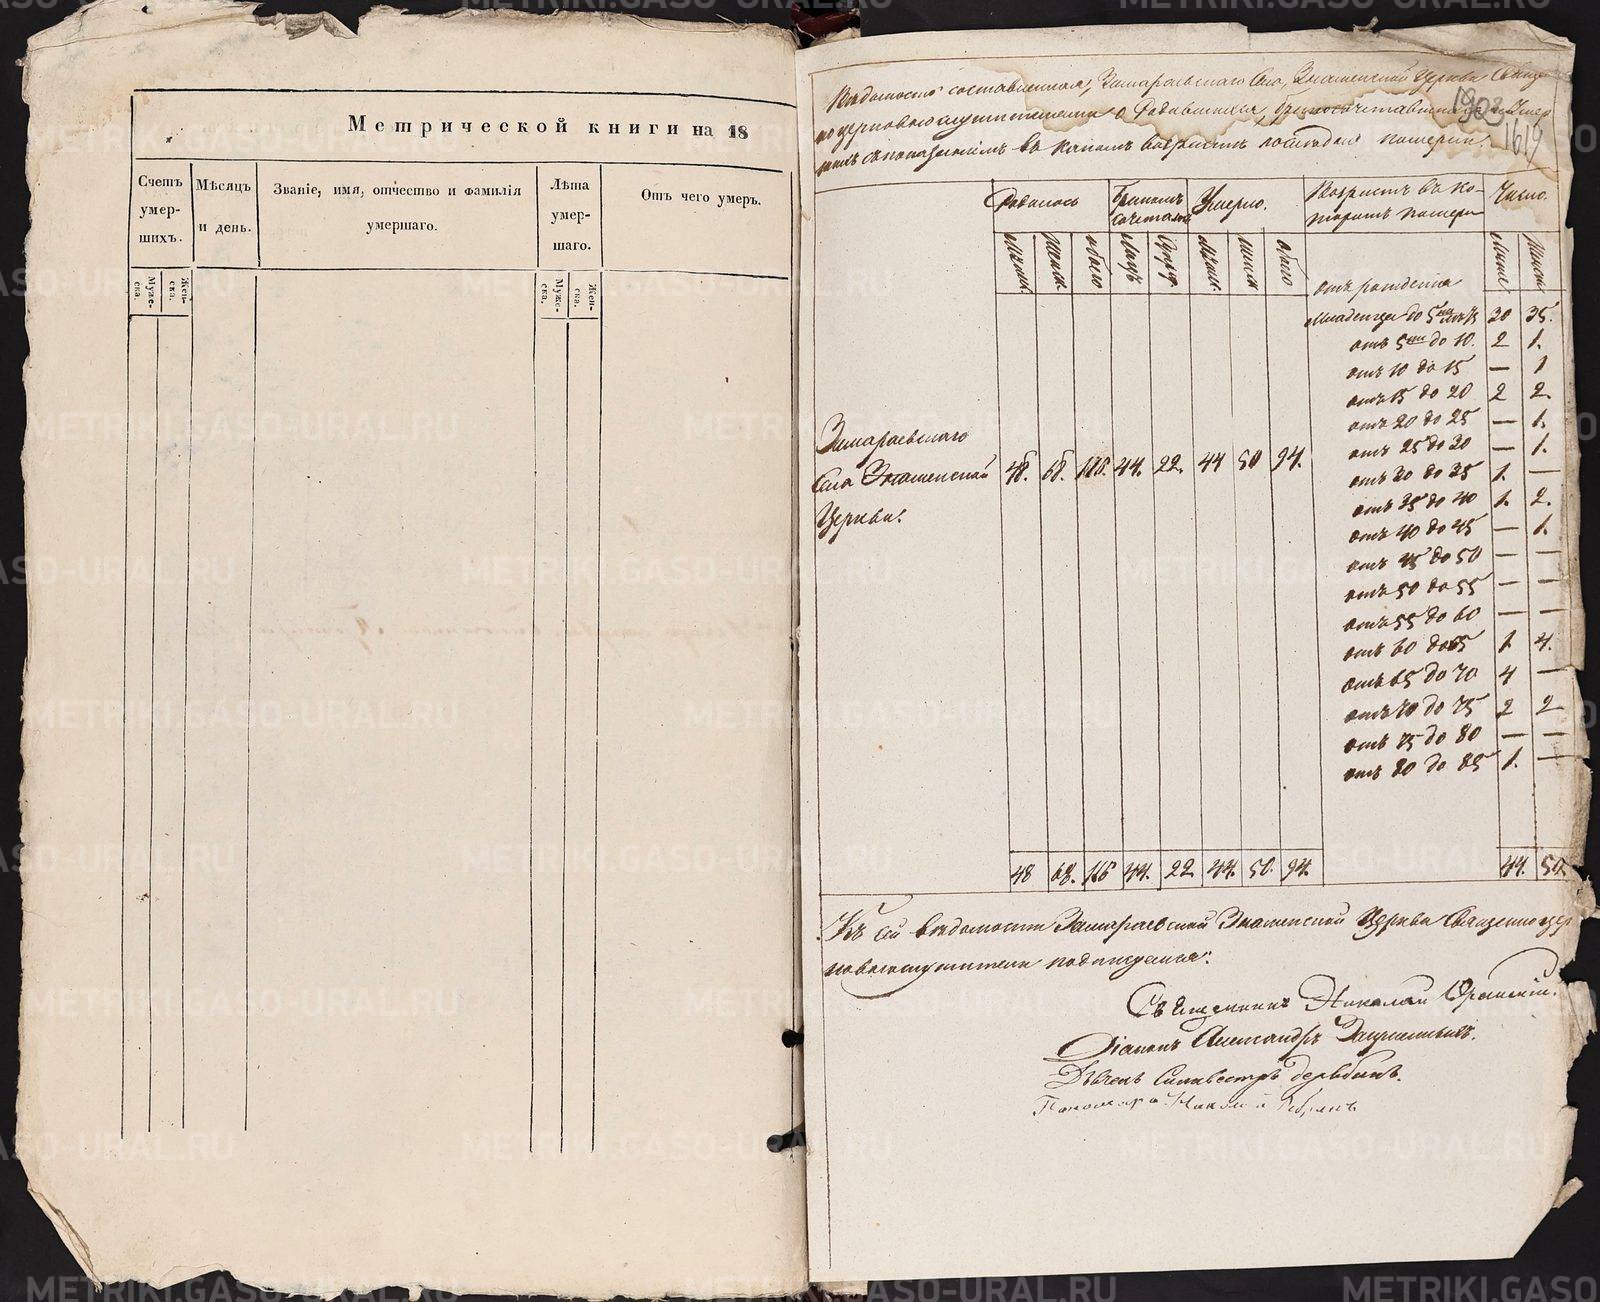 Метрической книги на 18
Счетъ умер- шихъ.
Мѣсяцъ и день.
Званіе, имя, отчество и фамилія умершаго.
Лѣта умер- шаго.
Отъ чего умеръ.
Муже- ска.
Жен- ска.
Муже- ска.
Жен- ска.
Вѣдомость составленная, Замараевскаго Села, Знаменской Церкви Свяще
но церковнослужителями о Родившихся, бракосочетавшихся и Умер
шихъ съ показаніемъ въ какомъ возрастѣ померли.
1903
1619
Родилось
Бракомъ сочетано
Умерло.
Возрастъ въ ко-
торомъ померли
Число.
Мужск.
Женск.
обоего
Лицъ
Мужск.
Женск
обоего
отъ рожденія
Младенца до 5 20 35.
отъ 5 до 10. 2 1.
отъ 10 до 15 — 1
отъ 15 до 20 2 2.
отъ 20 до 25 — 1.
отъ 25 до 30 — 1.
отъ 30 до 35 1. —
отъ 35 до 40 1. 2.
отъ 40 до 45 — 1.
отъ 45 до 50 — —
отъ 50 до 55 — —
отъ 55 до 60 — —
отъ 60 до 65 1. 4.
отъ 65 до 70 4 —
отъ 70 до 75 2 2
отъ 75 до 80 — —
отъ 80 до 85 1. —
Замараевскаго
Села Знаменской 48. 68. 116. 44. 22. 44 50 94.
Церкви.
48 68. 116 44. 22 44. 50. 94. 44. 50.
Къ сей вѣдомости Замараевской Знаменской Церкви Священноцер
ковнослужители подписуемся:
Священникъ Николай
Діаконъ Александръ
Дьячекъ Силивестръ
Пономарь
METRIKI.GASO-URAL.RU